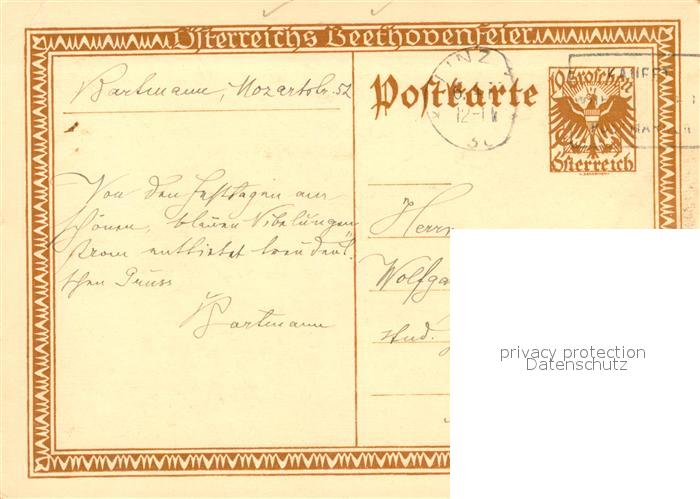 Österreichs Beethovenfeier
Bartmann, Mozartstr. 52
Postkarte
LINZ
12-IV
10 Groschen
Österreich
KAUFET
Von den Festtagen am
schönen, blauen Nibelungen
strom entbietet treudeut
schen Gruss
Bartmann
Herrn
Wolfga
stud.
privacy protection
Datenschutz